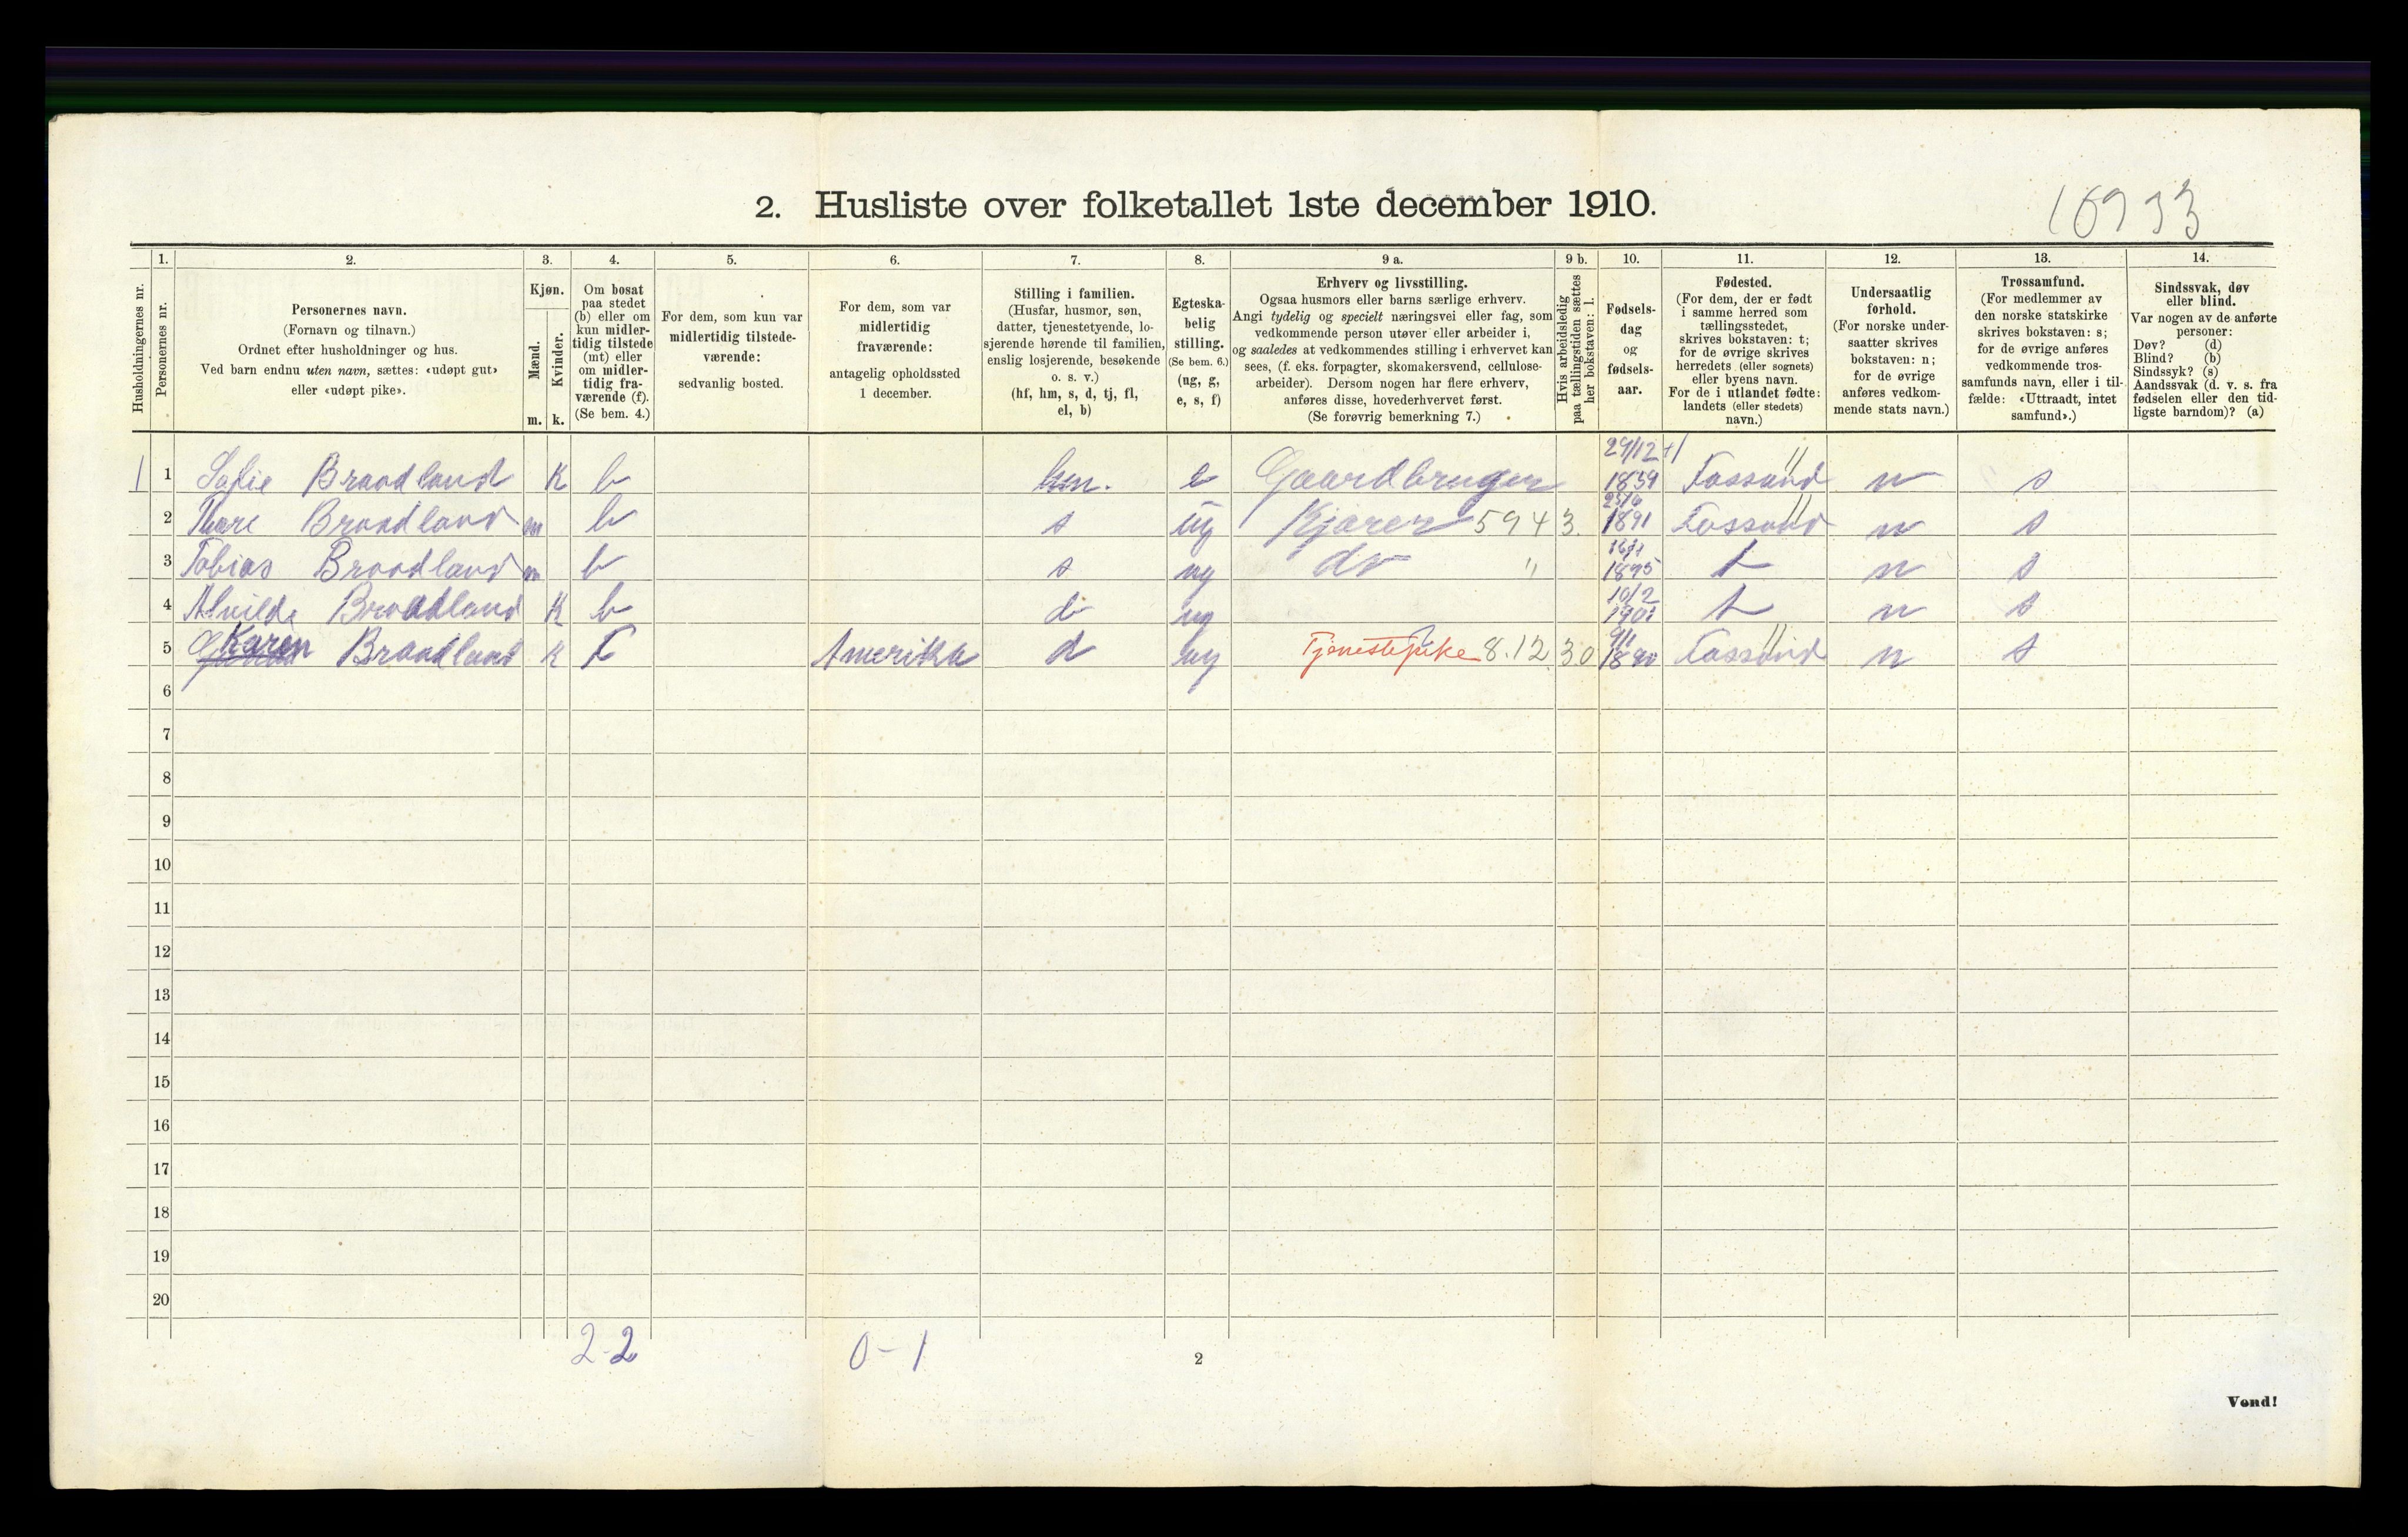 2. Husliste over folketallet 1ste december 1910.
16933
Husholdningernes nr.
1.
Personernes nr.
2.
Personernes navn.
(Fornavn og tilnavn.)
Ordnet efter husholdninger og hus.
Ved barn endnu uten navn, sættes: «udøpt gut»
eller «udøpt pike».
3.
Kjøn.
Mænd.
Kvinder.
m. k.
4.
Om bosat
paa stedet
(b) eller om
kun midler-
tidig tilstede
(mt) eller
om midler-
tidig fra-
værende (f).
(Se bem. 4.)
5.
For dem, som kun var
midlertidig tilstede-
værende:
sedvanlig bosted.
6.
For dem, som var
midlertidig
fraværende:
antagelig opholdssted
1 december.
7.
Stilling i familien.
(Husfar, husmor, søn,
datter, tjenestetyende, lo-
sjerende hørende til familien,
enslig losjerende, besøkende
o. s. v.)
(hf, hm, s, d, tj, fl,
el, b)
8.
Egteska-
belig
stilling.
(Se bem. 6.)
(ug, g,
e, s, f)
9 a.
Erhverv og livsstilling.
Ogsaa husmors eller barns særlige erhverv.
Angi tydelig og specielt næringsvei eller fag, som
vedkommende person utøver eller arbeider i,
og saaledes at vedkommendes stilling i erhvervet kan
sees, (f. eks. forpagter, skomakersvend, cellulose-
arbeider). Dersom nogen har flere erhverv,
anføres disse, hovederhvervet først.
(Se forøvrig bemerkning 7.)
9 b.
Hvis arbeidsledig
paa tællingstiden sættes
her bokstaven: l.
10.
Fødsels-
dag
og
fødsels-
aar.
11.
Fødested.
(For dem, der er født
i samme herred som
tællingsstedet,
skrives bokstaven: t;
for de øvrige skrives
herredets (eller sognets)
eller byens navn.
For de i utlandet fødte:
landets (eller stedets)
navn.)
12.
Undersaatlig
forhold.
(For norske under-
saatter skrives
bokstaven: n;
for de øvrige
anføres vedkom-
mende stats navn.)
13.
Trossamfund.
(For medlemmer av
den norske statskirke
skrives bokstaven: s;
for de øvrige anføres
vedkommende tros-
samfunds navn, eller i til-
fælde: «Uttraadt, intet
samfund».)
14.
Sindssvak, døv
eller blind.
Var nogen av de anførte
personer:
Døv? (d)
Blind? (b)
Sindssyk? (s)
Aandssvak (d. v. s. fra
fødselen eller den tid-
ligste barndom)? (a)
1 1 Sofie Braadland K b hm. e Gaardbruger 29/12 1839 Fossand n s
2 Thore Braadland m b s ug Kjører 594 3. 1891 Fossand n s
3 Tobias Braadland m b s ug do " 1895 t n s
4 Alvilde Braadland K b d ug 10/2 1901 t n s
5 Karen Braadland K f Amerika d ug Tjenestepike 8.12 30 1890 Fossand n s
6
7
8
9
10
11
12
13
14
15
16
17
18
19
20
2-2 0-1
2
Vend!